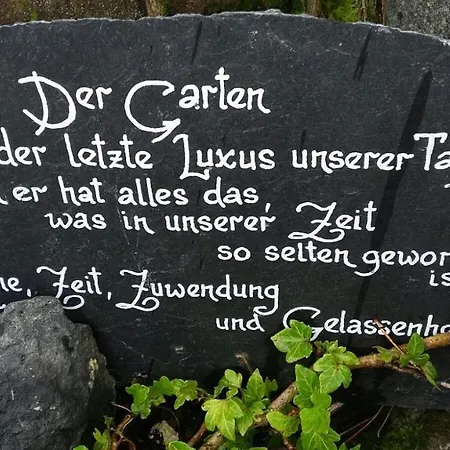 Der Garten
der letzte Luxus unserer Ta
er hat alles das,
was in unserer Zeit
so selten gewor
is
ne, Zeit, Zuwendung
und Gelassenh